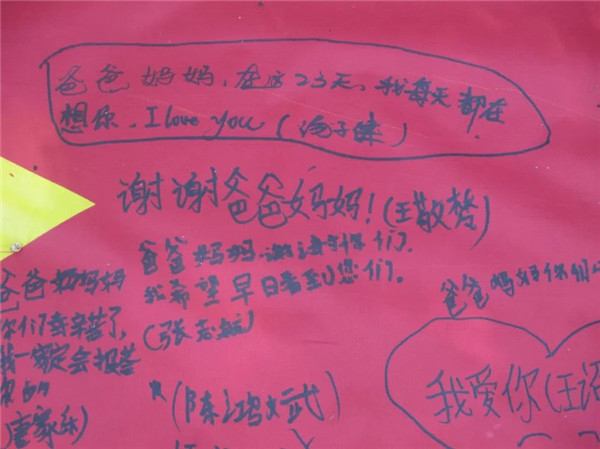 爸爸妈妈,在这23天,我每天都在
想你。I love you(汤子健)
谢谢爸爸妈妈!(王敬赞)
爸爸妈妈,谢谢你们,
我希望早日看到您们。
(张志航)
爸爸妈妈
你们辛苦了,
我一定会报答
(唐家乐)
(陈鸿斌)
爸爸妈妈你们
我爱你(王